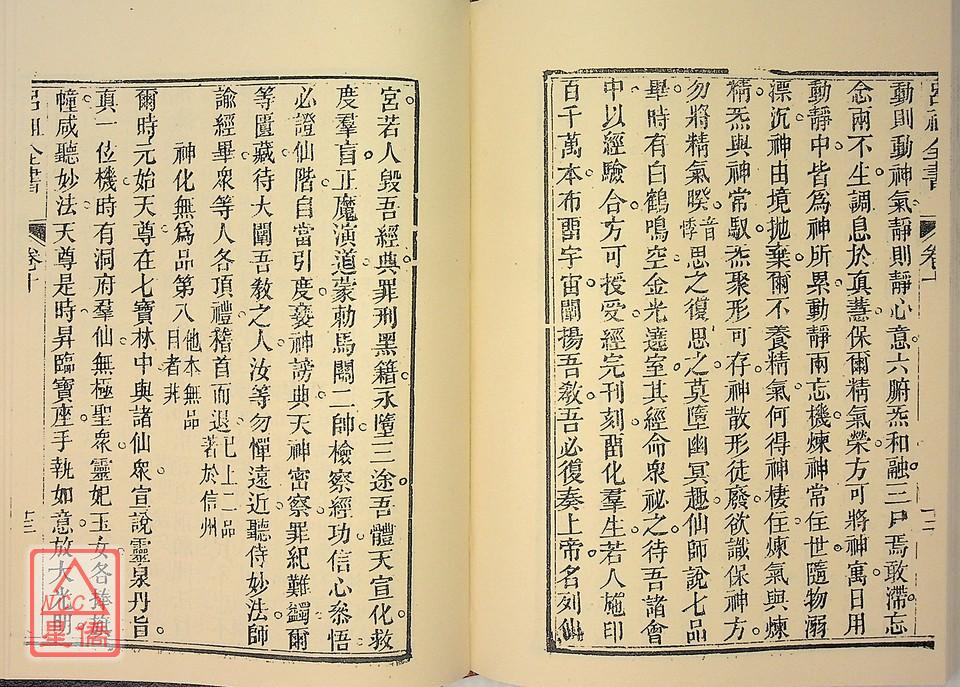 呂祖全書 卷十 十二
動則動神氣靜則靜心意六腑炁和融三尸焉敢滯忘
念兩不生調息於真蕙保爾精氣榮方可將神寓日用
動靜中皆爲神所累動靜兩忘機煉神常住世隨物溺
漂沉神由境拋棄爾不養精氣何得神棲住煉氣與煉
精炁與神常馭炁聚形可存神散形徒廢欲識保神方
勿將精氣暌音悸思之復思之莫墮幽冥趣仙師說七品
畢時有白鶴鳴空金光達室其經命衆祕之待吾諸會
中以經驗合方可授受經完刊刻啚化羣生若人施印
百千萬本布畱宇宙闡揚吾敎吾必復奏上帝名列仙
宮若人毀吾經典罪刑黑籍永墮三途吾體天宣化救
度羣盲正魔演道蒙勅馬關二帥檢察經功信心叅悟
必證仙階自當引度褻神謗典天神密察罪紀難蠲爾
等匱藏待大闡吾敎之人汝等勿憚遠近聽侍妙法師
諭經畢衆等人各頂禮稽首而退已上二品著於信州
神化無爲品第八他本無品目者非
爾時元始天尊在七寶林中與諸仙衆宣說靈泉丹旨
真一位機時有洞府羣仙無極聖衆靈妃玉女各捧旛
幢咸聽妙法天尊是時昇臨寶座手執如意放大光明
呂祖全書 卷十 十三
NCC
星僑